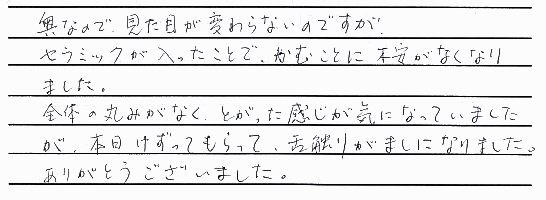 奥なので、見た目が変わらないのですが、
セラミックが入ったことで、かむことに不安がなくなり
ました。
全体の丸みがなく、とがった感じが気になっていました
が、本日けずってもらって、舌触りがましになりました。
ありがとうございました。